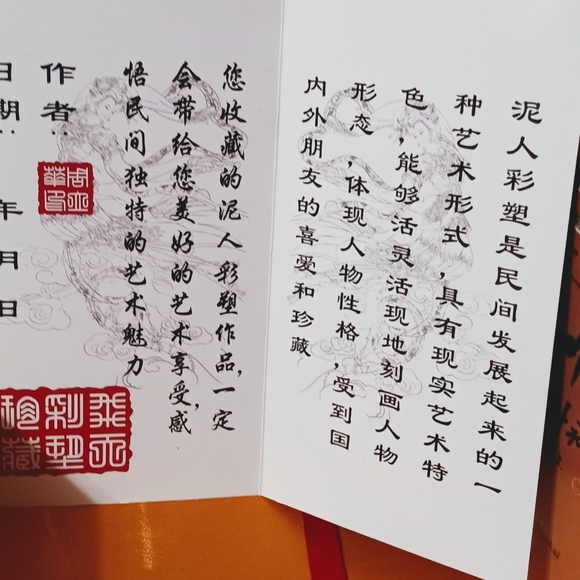 泥人彩塑是民间发展起来的一
种艺术形式，具有现实艺术特
色，能够活灵活现地刻画人物
形态，体现人物性格，受到国
内外朋友的喜爱和珍藏
您收藏的泥人彩塑作品，一定
会带给您美好的艺术享受，感
悟民间独特的艺术魅力
作者：
日期： 年 月 日
彩塑
藏